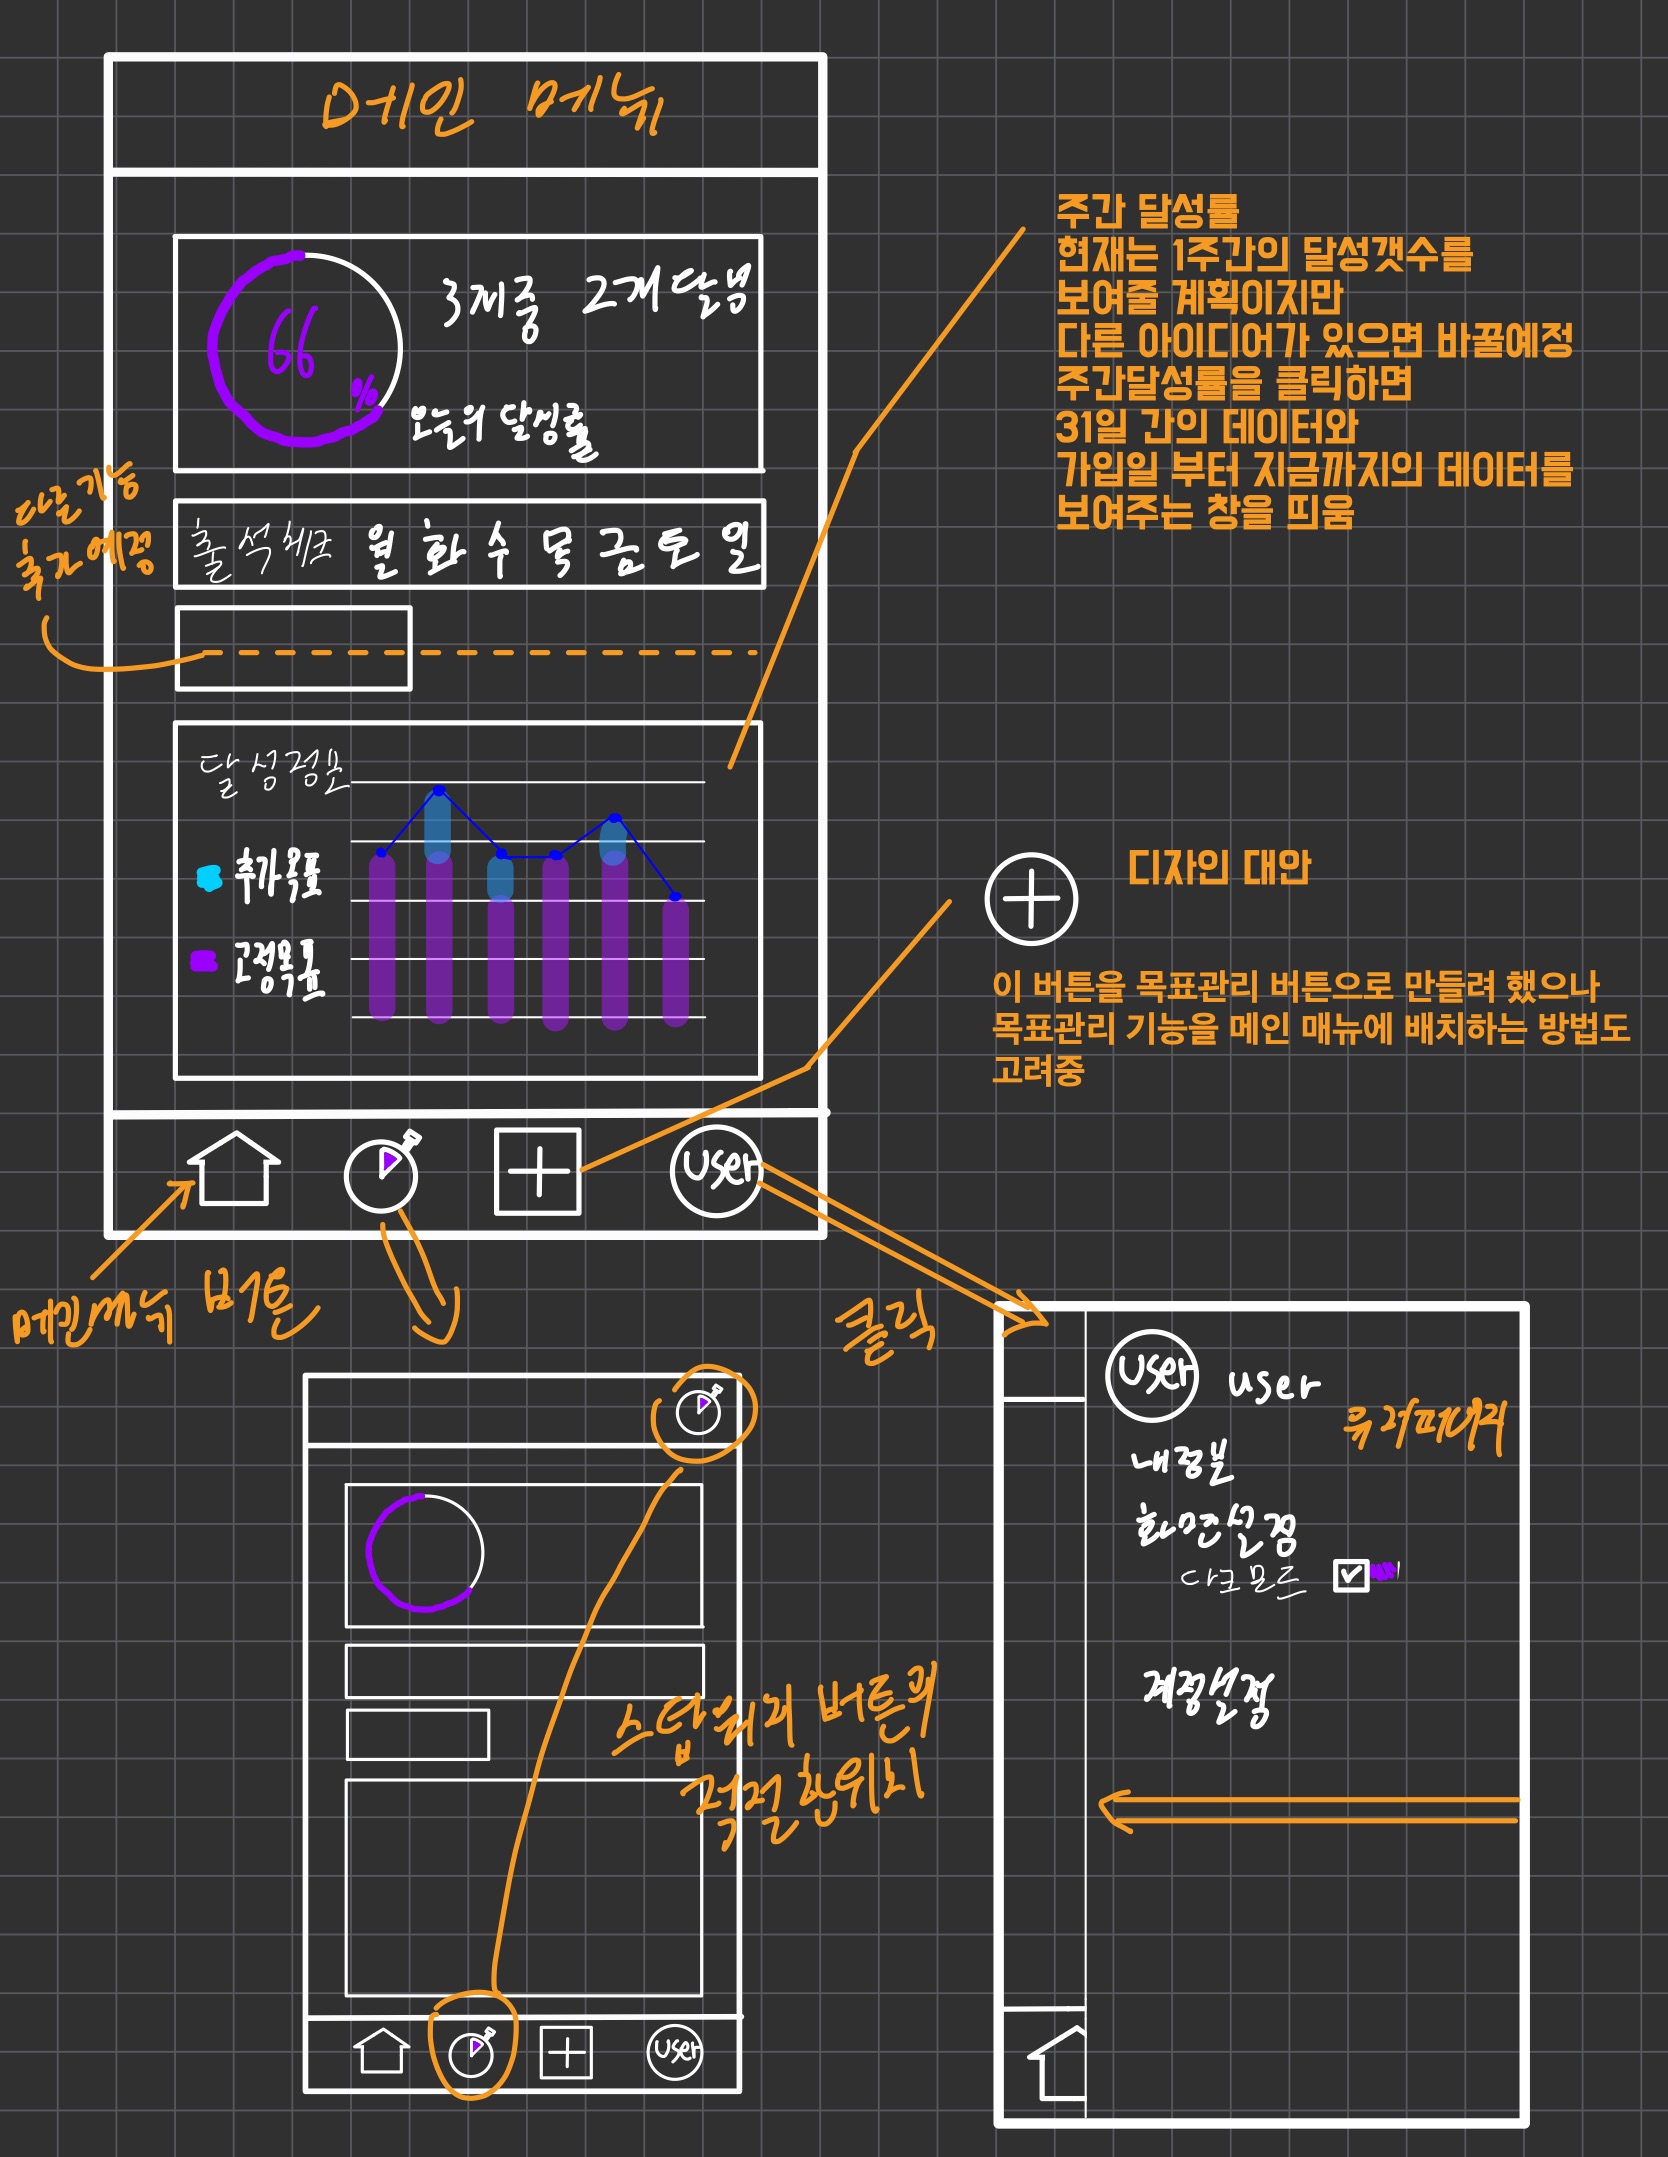 메인 메뉴
66
%
3개중 2개 달성
오늘의 달성률
출석체크 월 화 수 목 금 토 일
추가예정
달성정보
추가목표
고정목표
user
주간 달성률
현재는 1주간의 달성갯수를
보여줄 계획이지만
다른 아이디어가 있으면 바꿀예정
주간달성률을 클릭하면
31일 간의 데이터와
가입일 부터 지금까지의 데이터를
보여주는 창을 띄움
디자인 대안
이 버튼을 목표관리 버튼으로 만들려 했으나
목표관리 기능을 메인 매뉴에 배치하는 방법도
고려중
메인메뉴 버튼
클릭
스탑워치 버튼의
적절한위치
user
user
user
내정보
화면설정
다크모드
계정설정